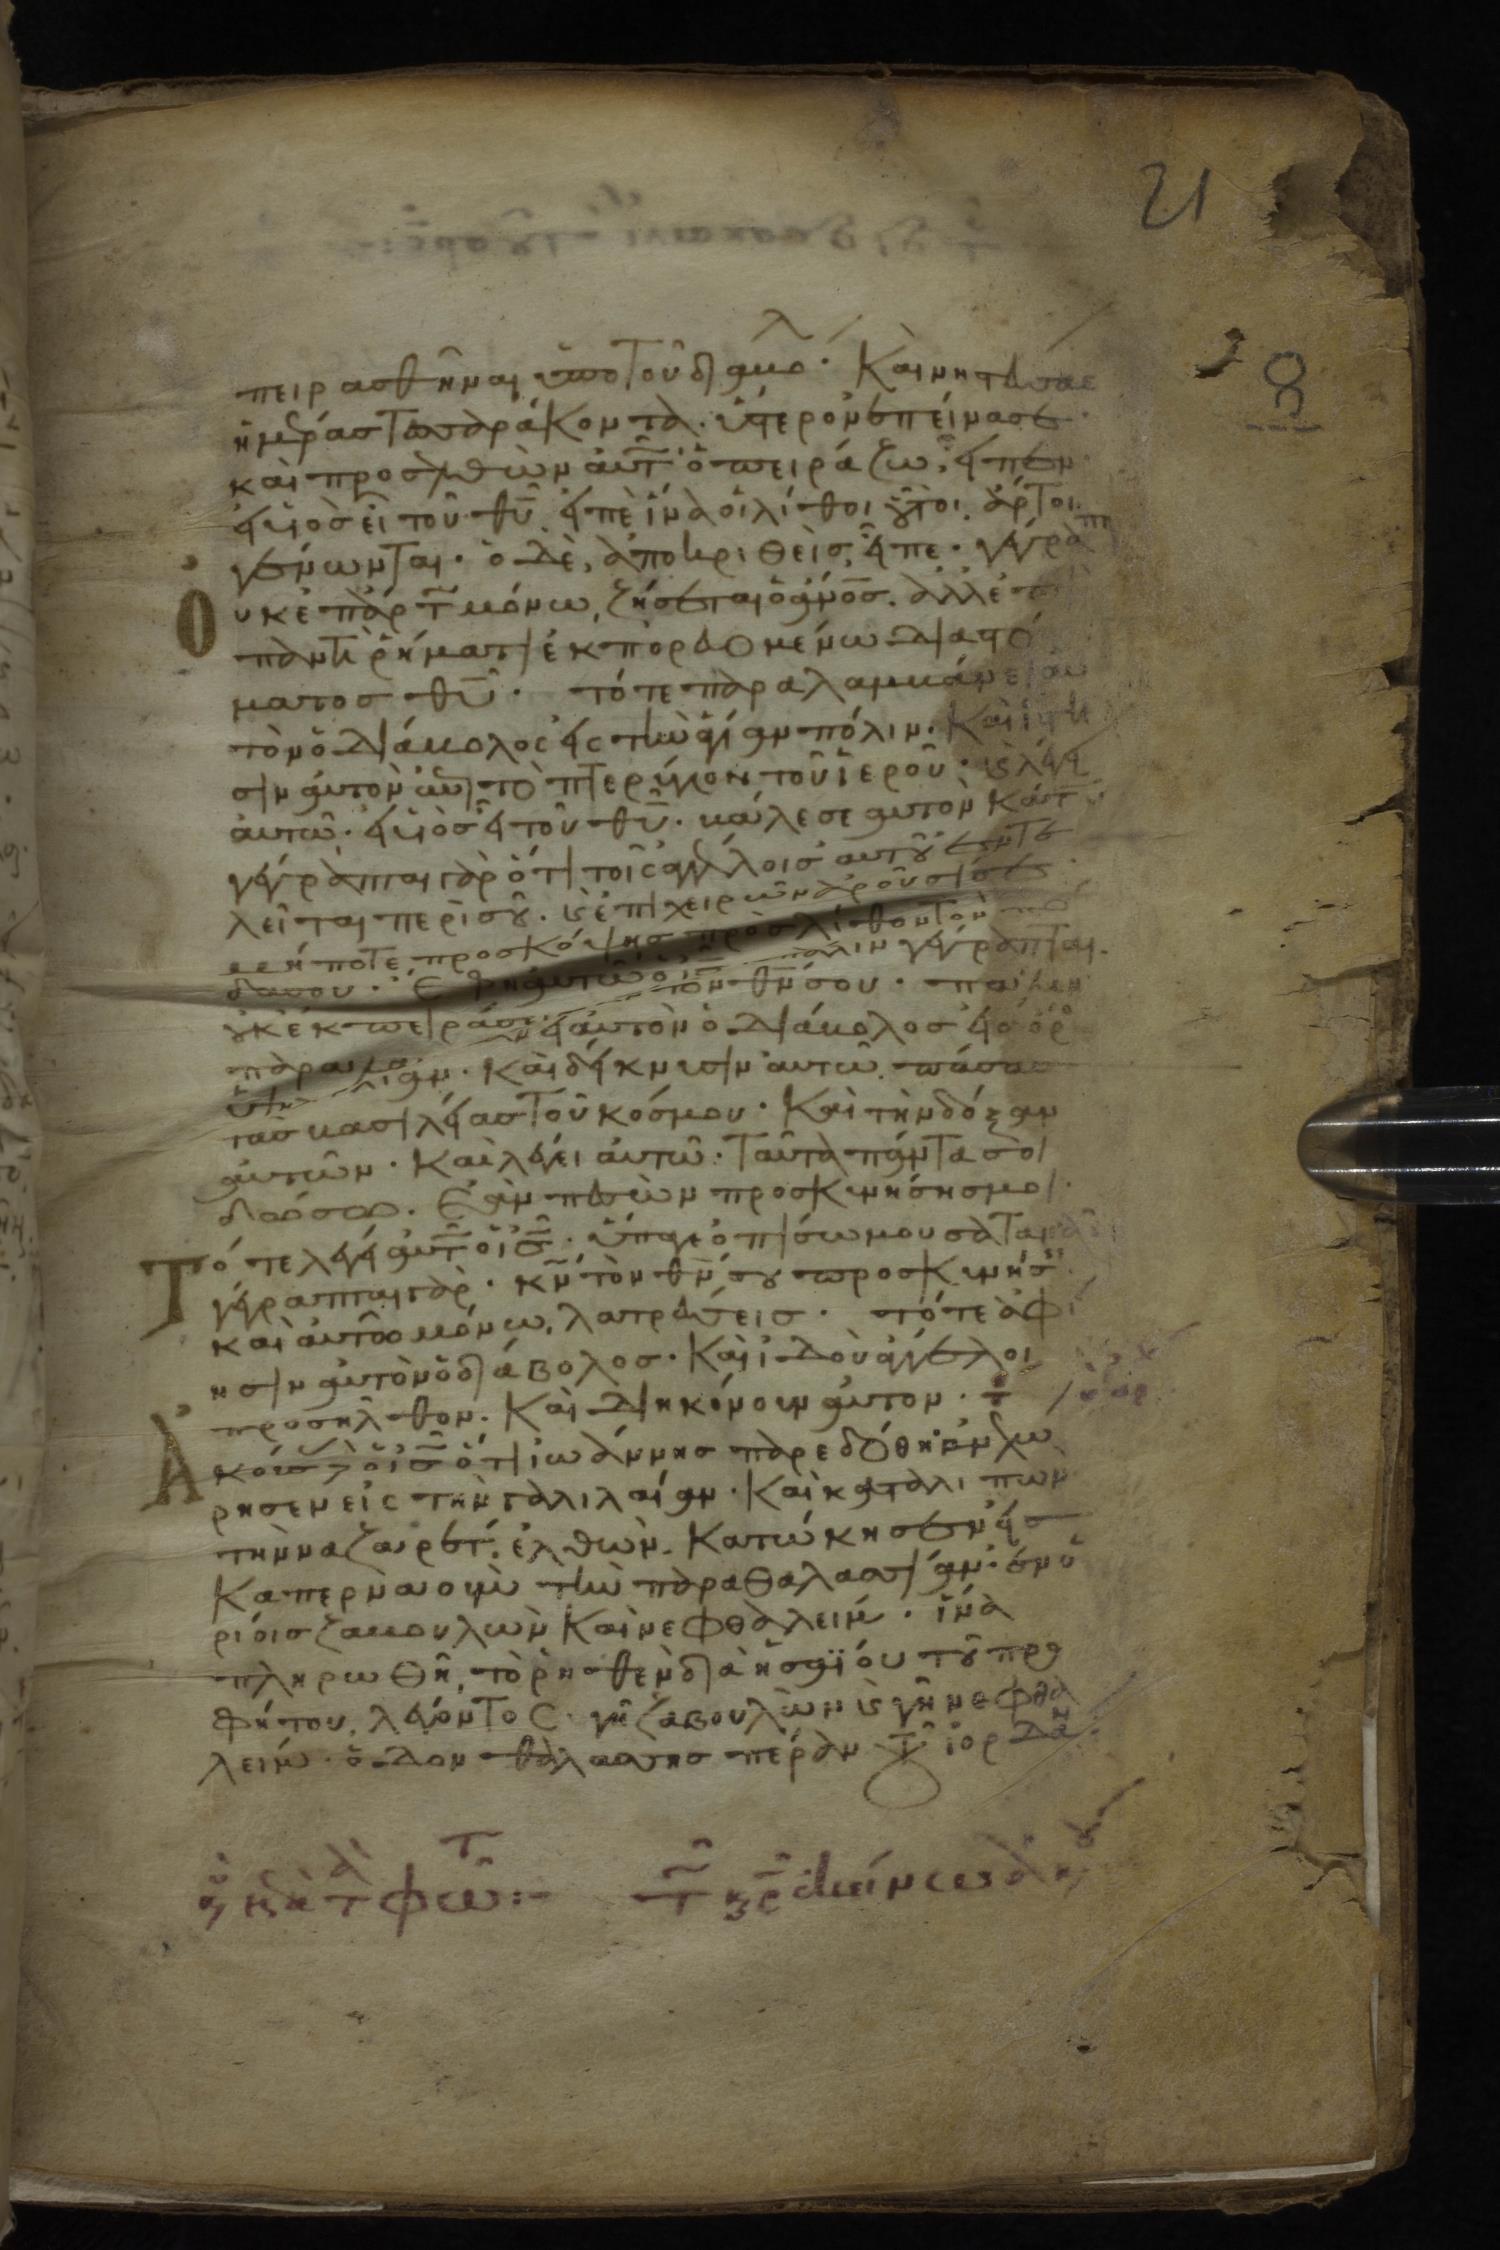 21
8
πειρασθῆναι ὑπὸ τοῦ διαβό^λ· Καὶ νηστεύσας
ἡμέρας τεσσαράκοντα. ὕστερον ἐπείνασε·
καὶ προσελθὼν αὐτῶ ὁ πειράζων, εἶπεν
εἰ υἱὸς εἶ τοῦ θυ. εἰπὲ ἵνα οἱ λίθοι οὗτοι ἄρτοι
γένωνται· ὁ δὲ, ἀποκριθεὶς, εἶπε· γέγραπτ
οὐκ ἐπ ἄρτω μόνω, ζήσεται ὁ ἄνος. ἀλλ ἐ
παντὶ ῥήματι ἐκπορευομένω διὰ στό
ματος θυ· τότε παραλαμβάνει αὐ
τὸν ὁ διάβολος εἰς τὴν ἁγίαν πόλιν. Καὶ ἵστη
σιν αὐτὸν ἐπὶ τὸ πτερύγιον τοῦ ἱεροῦ· καὶ λέγει
αὐτῶ· εἰ υἱὸς εἶ τοῦ θυ· βάλε σεαυτὸν κάτω
γέγραπται γὰρ ὅτι τοῖς ἀγγέλοις αὐτοῦ ἐντε
λεῖται περὶ σοῦ· καὶ ἐπὶ χειρῶν ἀροῦσί σε
μήποτε προσκόψης πρὸς λίθον τὸν πό
δα σου· Ἔφη αὐτῶ ὁ ις πάλιν γέγραπται·
οὐκ ἐκπειράσεις κν τὸν θν σου· πάλιν
παραλα εἰ αὐτὸν ὁ διάβολος εἰς ὄρο
ὑψη λίαν· Καὶ δείκνυσιν αὐτῶ πάσας
τὰς βασιλείας τοῦ κόσμου· Καὶ τὴν δόξαν
αὐτῶν· Καὶ λέγει αὐτῶ· Ταῦτα πάντα σοι
δώσω· Ἐὰν πεσὼν προσκυνήσης μοι·
Τότε λέγει αὐτῶ ὁ ις· ὕπαγε ὀπίσω μου σατανᾶ
γέγραπται γὰρ· κν τὸν θν σου προσκυνήσ
καὶ αὐτῶ μόνω, λατρεύσεις· τότε ἀφί
ησιν αὐτὸν ὁ διάβολος· Καὶ ἰδοὺ ἄγγελοι
προσῆλθον. Καὶ διηκόνουν αὐτον·
Ἀκούσας δὲ ὁ ις ὅτι ἰωάννης παρεδόθη ἀνεχώ
ρησεν εἰς τὴν γαλιλαίαν· Καὶ καταλιπὼν
τὴν ναζαρέτ, ἐλθὼν Κατώκησεν εἰς
Καπερναοὺμ τὴν παραθαλασσίαν· ἐν ὁ
ρίοις ζαβουλὼν Καὶ νεφθαλείμ· ἵνα
πληρωθῆ, τὸ ῥηθὲν διὰ ἡσαΐου τοῦ προ
φήτου, λέγοντος· γῆ ζαβουλὼν καὶ γῆ νεφθα
λείμ· ὁδὸν θαλάσσης πέραν τοῦ ἰορδάν